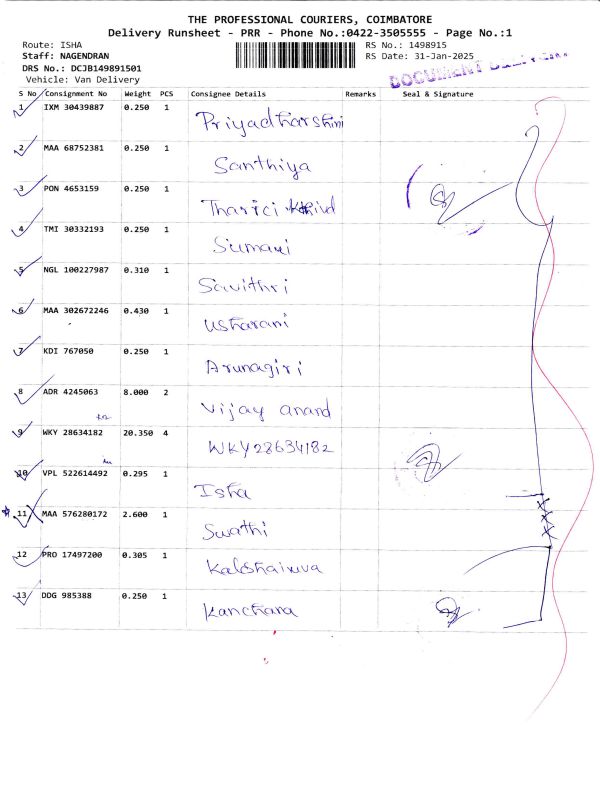 THE PROFESSIONAL COURIERS, COIMBATORE
Delivery Runsheet - PRR - Phone No.:0422-3505555 - Page No.:1
Route: ISHA
RS No.: 1498915
Staff: NAGENDRAN
RS Date: 31-Jan-2025
DRS No.: DCJB149891501
DOCUMENT
Vehicle: Van Delivery
S No Consignment No Weight PCS Consignee Details Remarks Seal & Signature
1 IXM 30439887 0.250 1
Priyadharshini
2 MAA 68752381 0.250 1
Santhiya
3 PON 4653159 0.250 1
Tharici
4 TMI 30332193 0.250 1
Sumani
5 NGL 100227987 0.310 1
Savithri
6 MAA 302672246 0.430 1
Usharani
7 KDI 767050 0.250 1
Arunagiri
8 ADR 4245063 8.000 2
Vijay anand
9 WKY 28634182 20.350 4
WKY 28634182
10 VPL 522614492 0.295 1
Isha
11 MAA 576280172 2.600 1
Swathi
12 PRO 17497200 0.305 1
13 DDG 985388 0.250 1
Kanchana